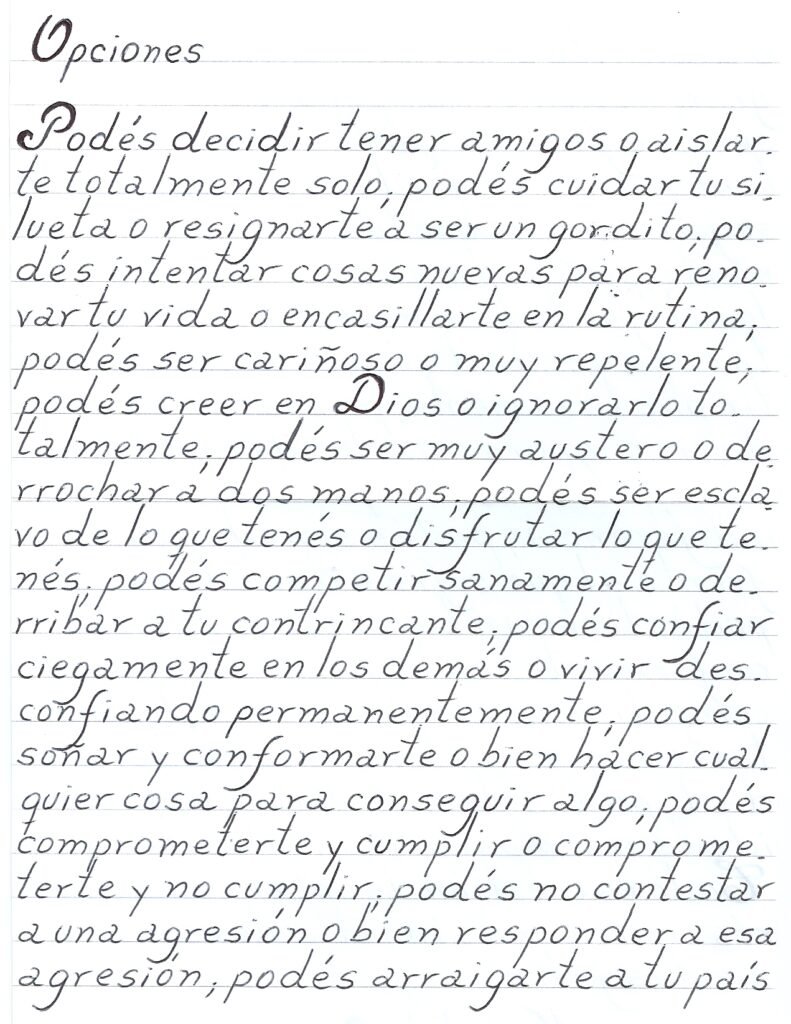 Opciones
Podés decidir tener amigos o aislar-
te totalmente solo; podés cuidar tu si-
lueta o resignarte a ser un gordito; po-
dés intentar cosas nuevas para reno-
var tu vida o encasillarte en la rutina;
podés ser cariñoso o muy repelente;
podés creer en Dios o ignorarlo to-
talmente; podés ser muy austero o de-
rrochar a dos manos; podés ser escla-
vo de lo que tenés o disfrutar lo que te-
nés; podés competir sanamente o de-
rribar a tu contrincante; podés confiar
ciegamente en los demás o vivir des-
confiando permanentemente; podés
soñar y conformarte o bien hacer cual-
quier cosa para conseguir algo; podés
comprometerte y cumplir o comprome-
terte y no cumplir; podés no contestar
a una agresión o bien responder a esa
agresión; podés arraigarte a tu país